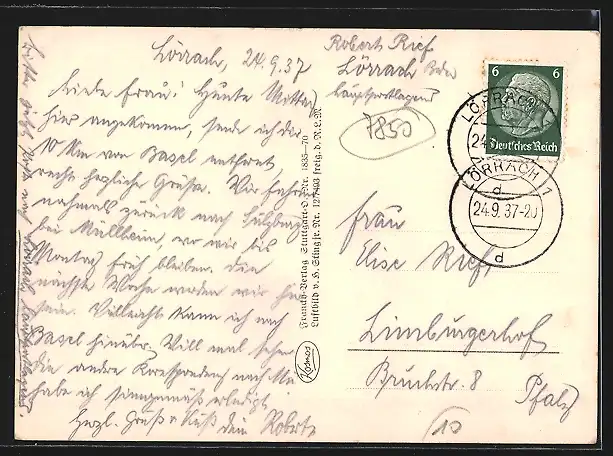 Lörrach, 24.9.37
Liebe Frau! Heute Mittag
hier angekommen, sende ich dir
10 km von Basel entfernt,
recht herzliche Grüße. Wir fahren
nochmals zurück nach Sulzburg
bei Müllheim, wo wir bis
Montag früh bleiben. Die
nächste Woche werden wir hier
sein. Vielleicht kann ich nach
Basel hinüber. Will mal sehen
die andere Korrespondenz nach
habe ich sinngemäß erledigt.
Herzl. Gruß u Kuß dein Robert
Franckh-Verlag Stuttgart-O. Nr. 1835-70
Luftbild v. H. Stinglfr. Nr. freig. d. R.L.M.
Kosmos
Robert Rief
Lörrach Bdn
Hauptpostlagernd
7850
6 6
Deutsches Reich
LÖRRACH
24
LÖRRACH 1
d
24.9.37-20
d
Frau
Elise Rief
Limburgerhof
Bruchstr. 8
Pfalz
10